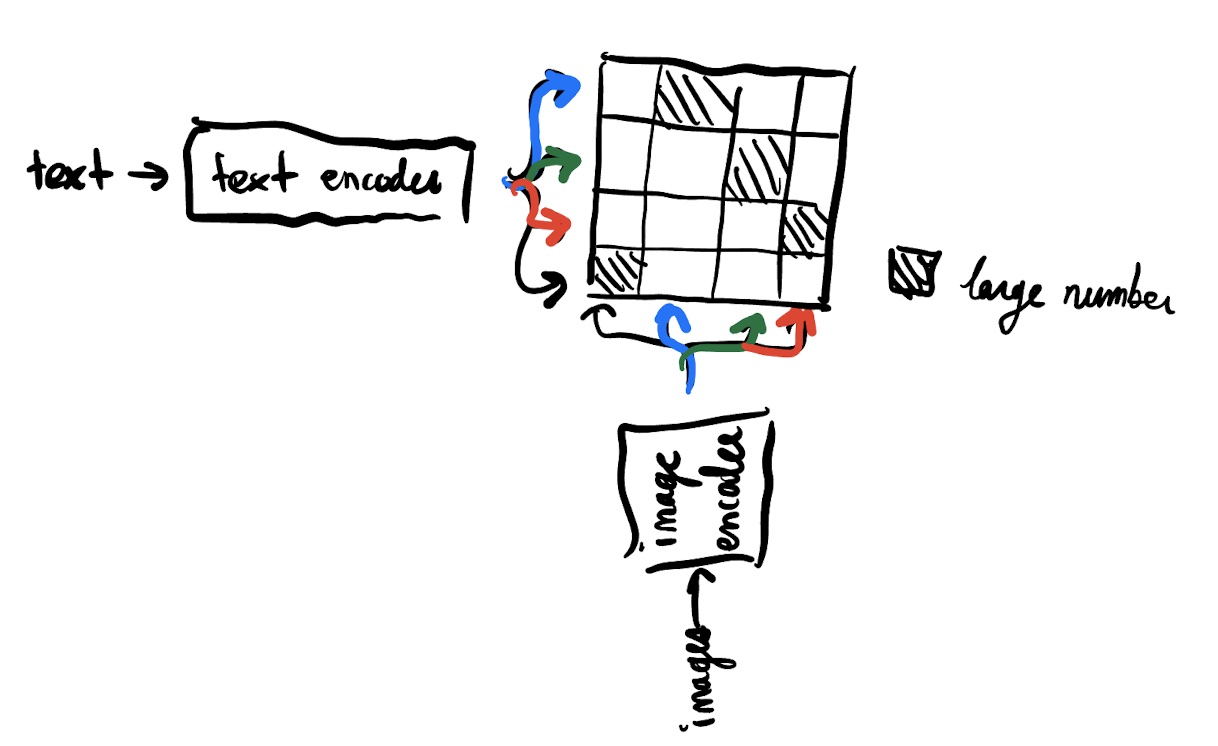 text → text encoder
large number
image
encoder
images